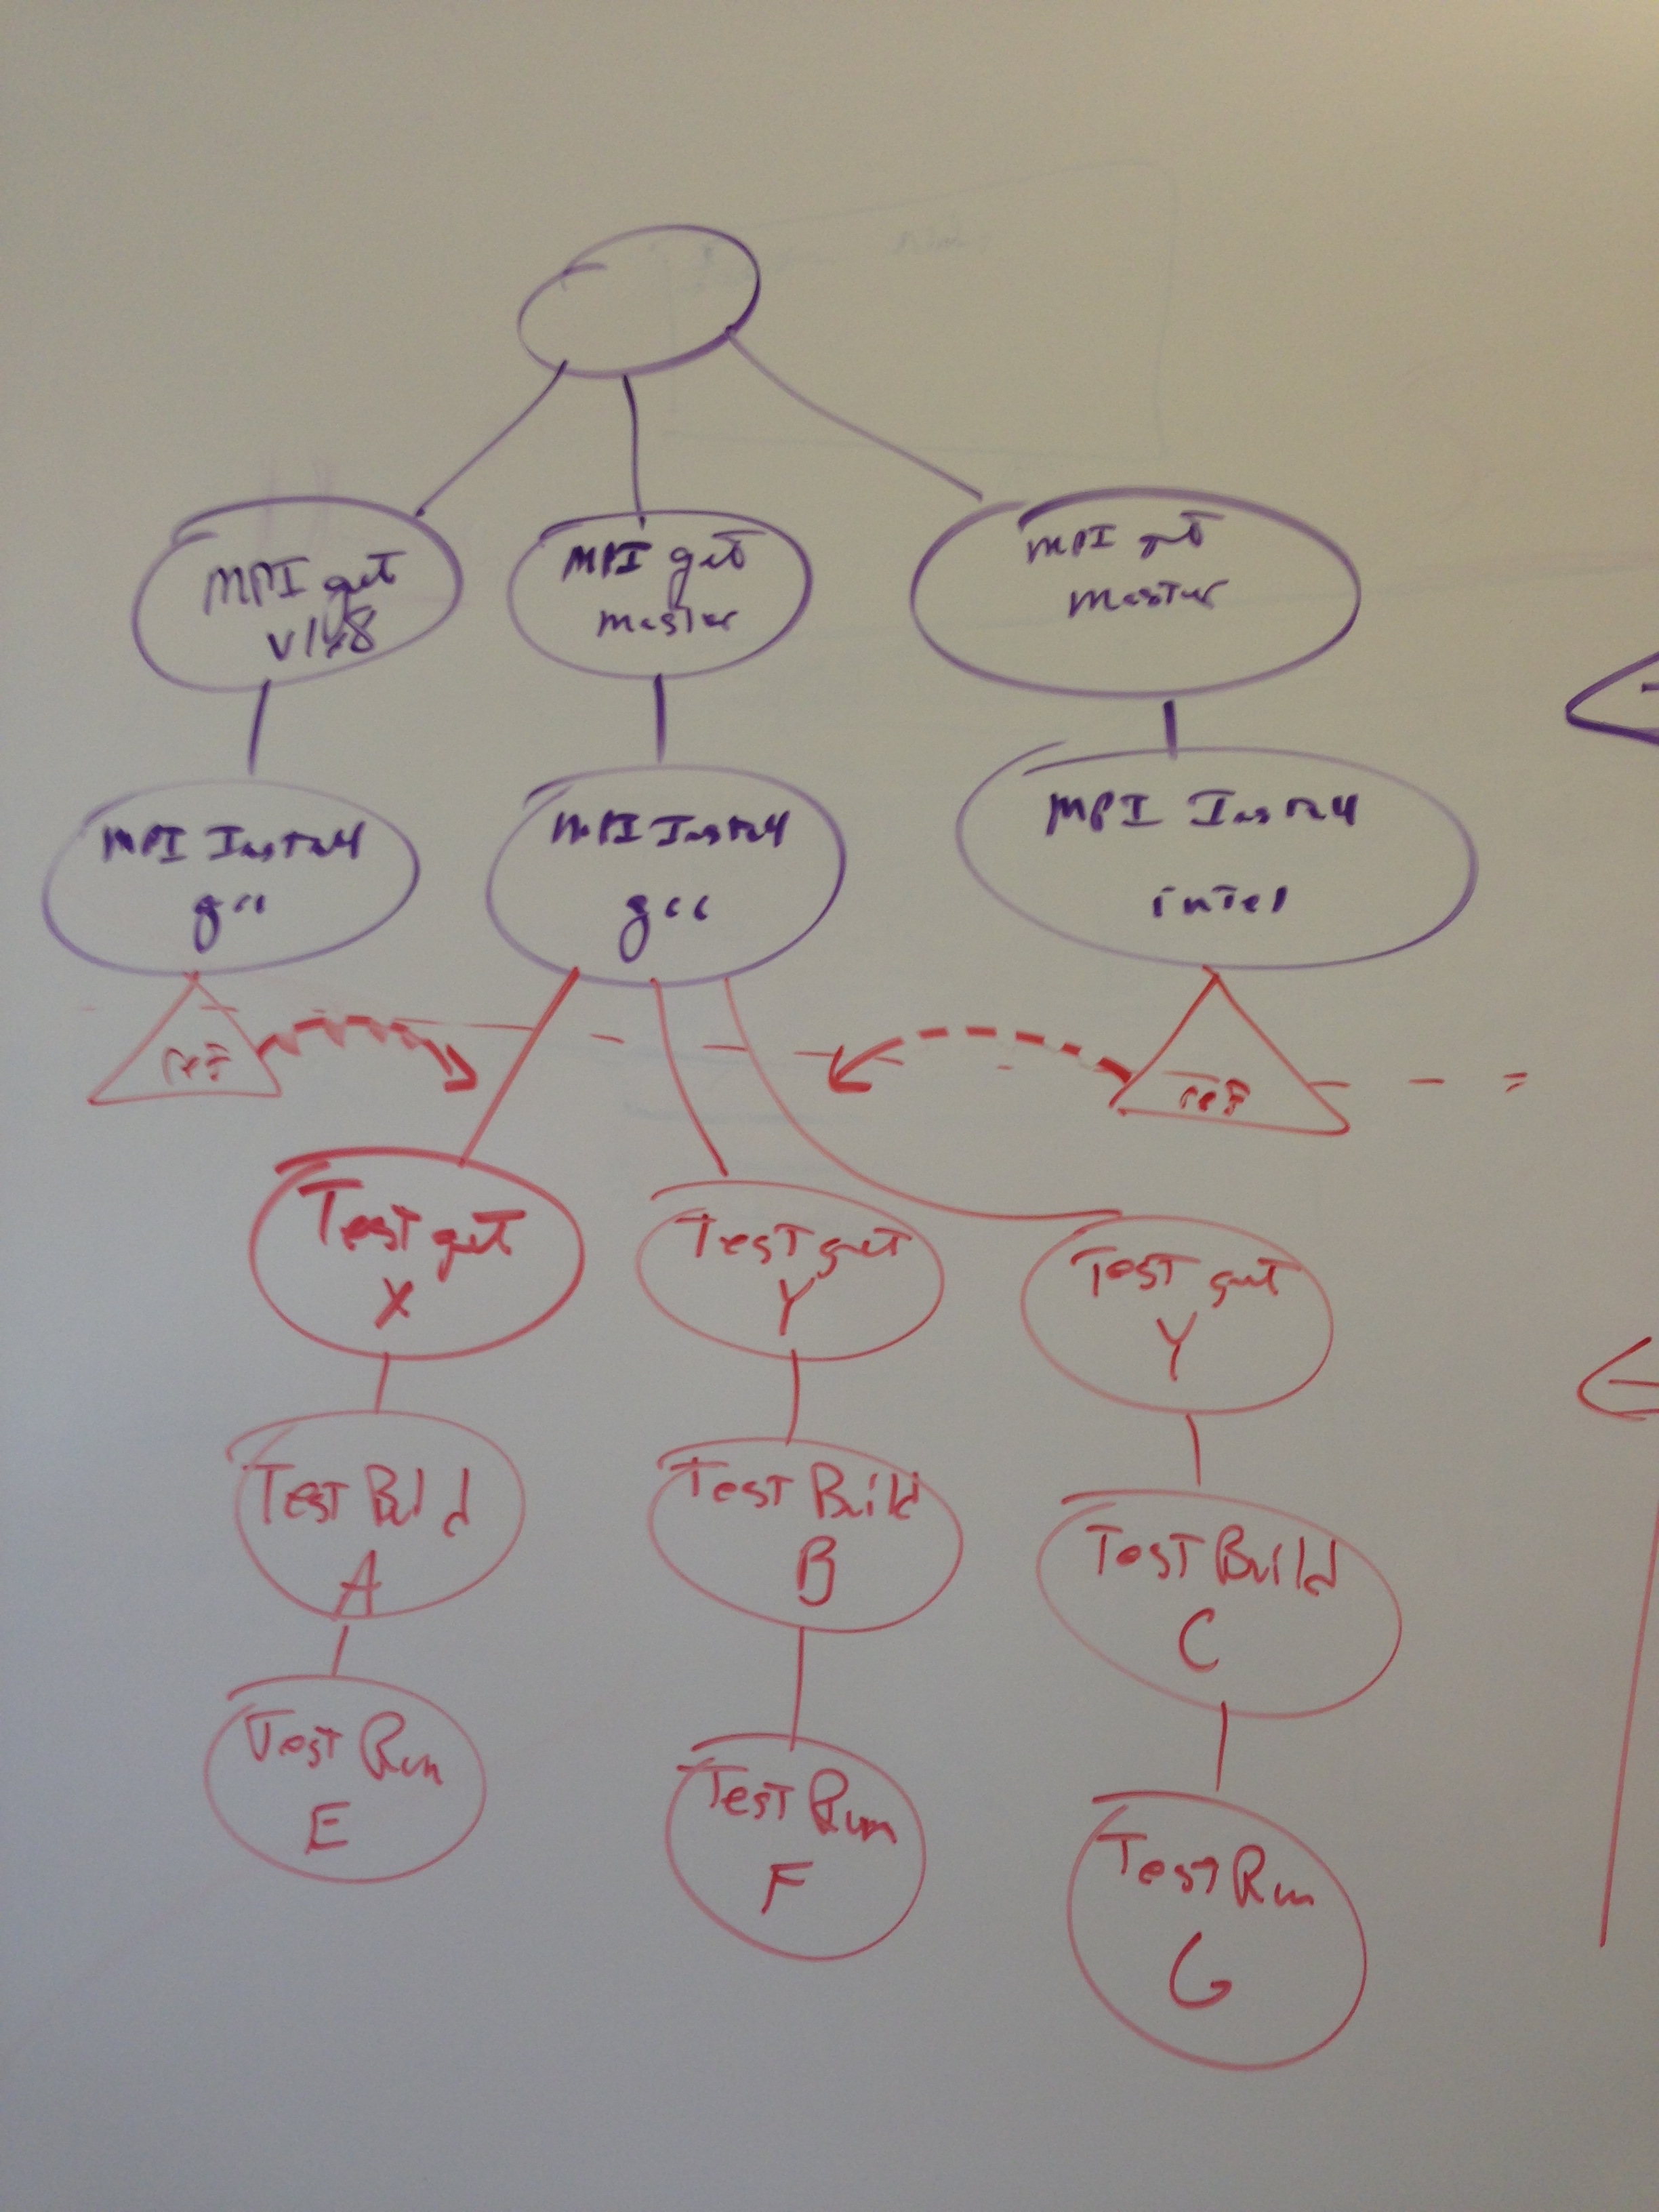 MPI get
v1.8
MPI get
master
MPI get
master
MPI Install
gcc
MPI Install
gcc
MPI Install
intel
ref
ref
Test get
X
Test get
Y
Test get
Y
Test Build
A
Test Build
B
Test Build
C
Test Run
E
Test Run
F
Test Run
G